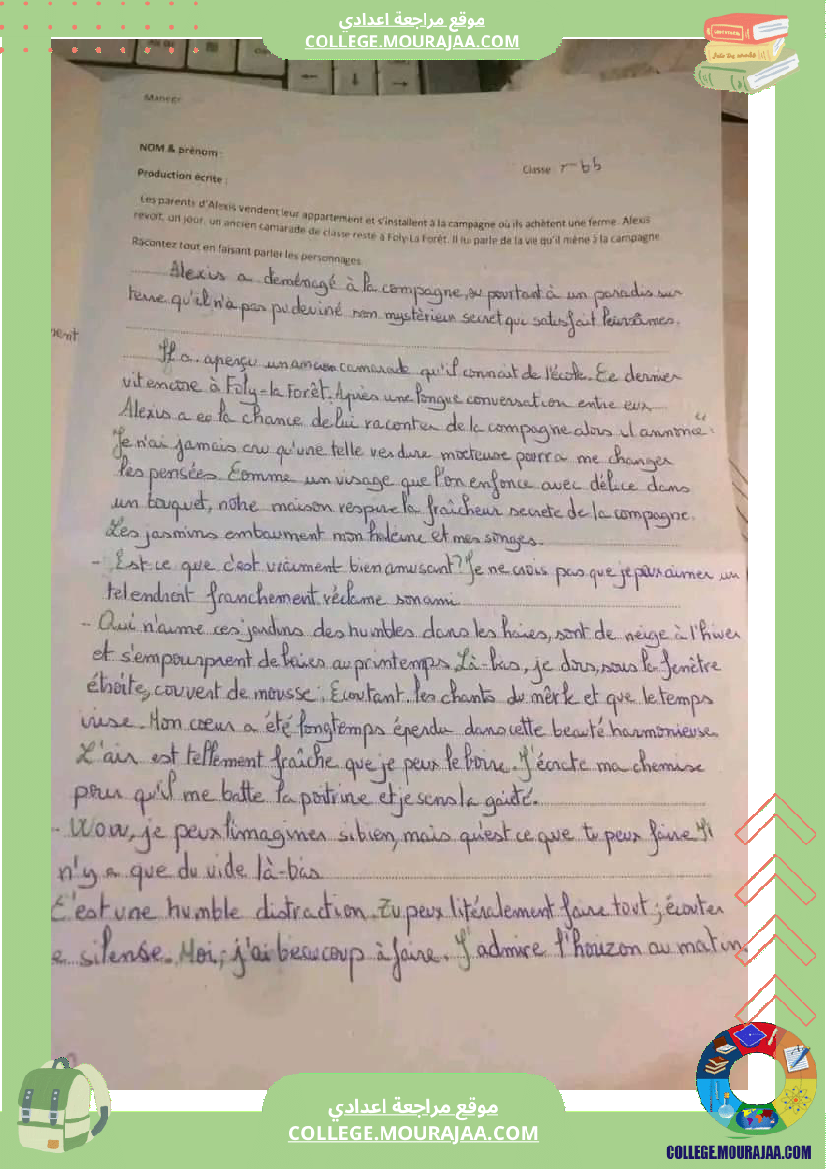 موقع مراجعة اعدادي
COLLEGE.MOURAJAA.COM
Manege
NOM & prénom :
Classe :
Production écrite :
Les parents d'Alexis vendent leur appartement et s'installent à la campagne où ils achètent une ferme. Alexis
revoit, un jour, un ancien camarade de classe resté à Foly-La Forêt. Il lui parle de la vie qu'il mène à la campagne
Racontez tout en faisant parler les personnages
Alexis a deménagé à la compagne, ou pourtant à un paradis sur
terre qu'il n'a pas pu deviné son mystérieux secret que satisfait leurs âmes.
ent
Il a aperçu un ancien camarade qu'il connait de l'école. Ce dernier
vit encore à Foly-la Forêt. Après une longue conversation entre eux
Alexis a eo la chance de lui raconter de la compagne alors il annonce : "
Je n'ai jamais cru qu'une telle verdure moteuse pourra me changer
les pensées Comme un visage que l'on enfonce avec délice dans
un bouquet, notre maison respire la fraîcheur secrete de la compagne.
Les jasmins embaument mon haleine et mes songes.
- Est ce que c'est vraiment bien amusant? Je ne crois pas que je peux aimer un
tel endroit franchement réclame son ami
- Qui n'aime ces jardins des humbles dans les haies, sont de neige à l'hiver
et s'empourprent de baies au printemps. Là-bas, je dors, sous la fenêtre
étroite, couvert de mousse. Ecoutant les chants du merle et que le temps
Mon coeur a été longtemps éperdu dans cette beauté harmonieuse
L'air est tellement fraîche que je peux le boire. J'écarte ma chemise
pour qu'il me batte la poitrine et je sens la gaieté.
- Wow, je peux l'imaginer si bien, mais qu'est ce que tu peux faire Il
n'y a que du vide là-bas
C'est une humble distraction. Tu peux litéralement faire tout ; écouter
e silense. Moi, j'ai beaucoup à faire. J'admire l'houizon au matin.
موقع مراجعة اعدادي
COLLEGE.MOURAJAA.COM
COLLEGE.MOURAJAA.COM